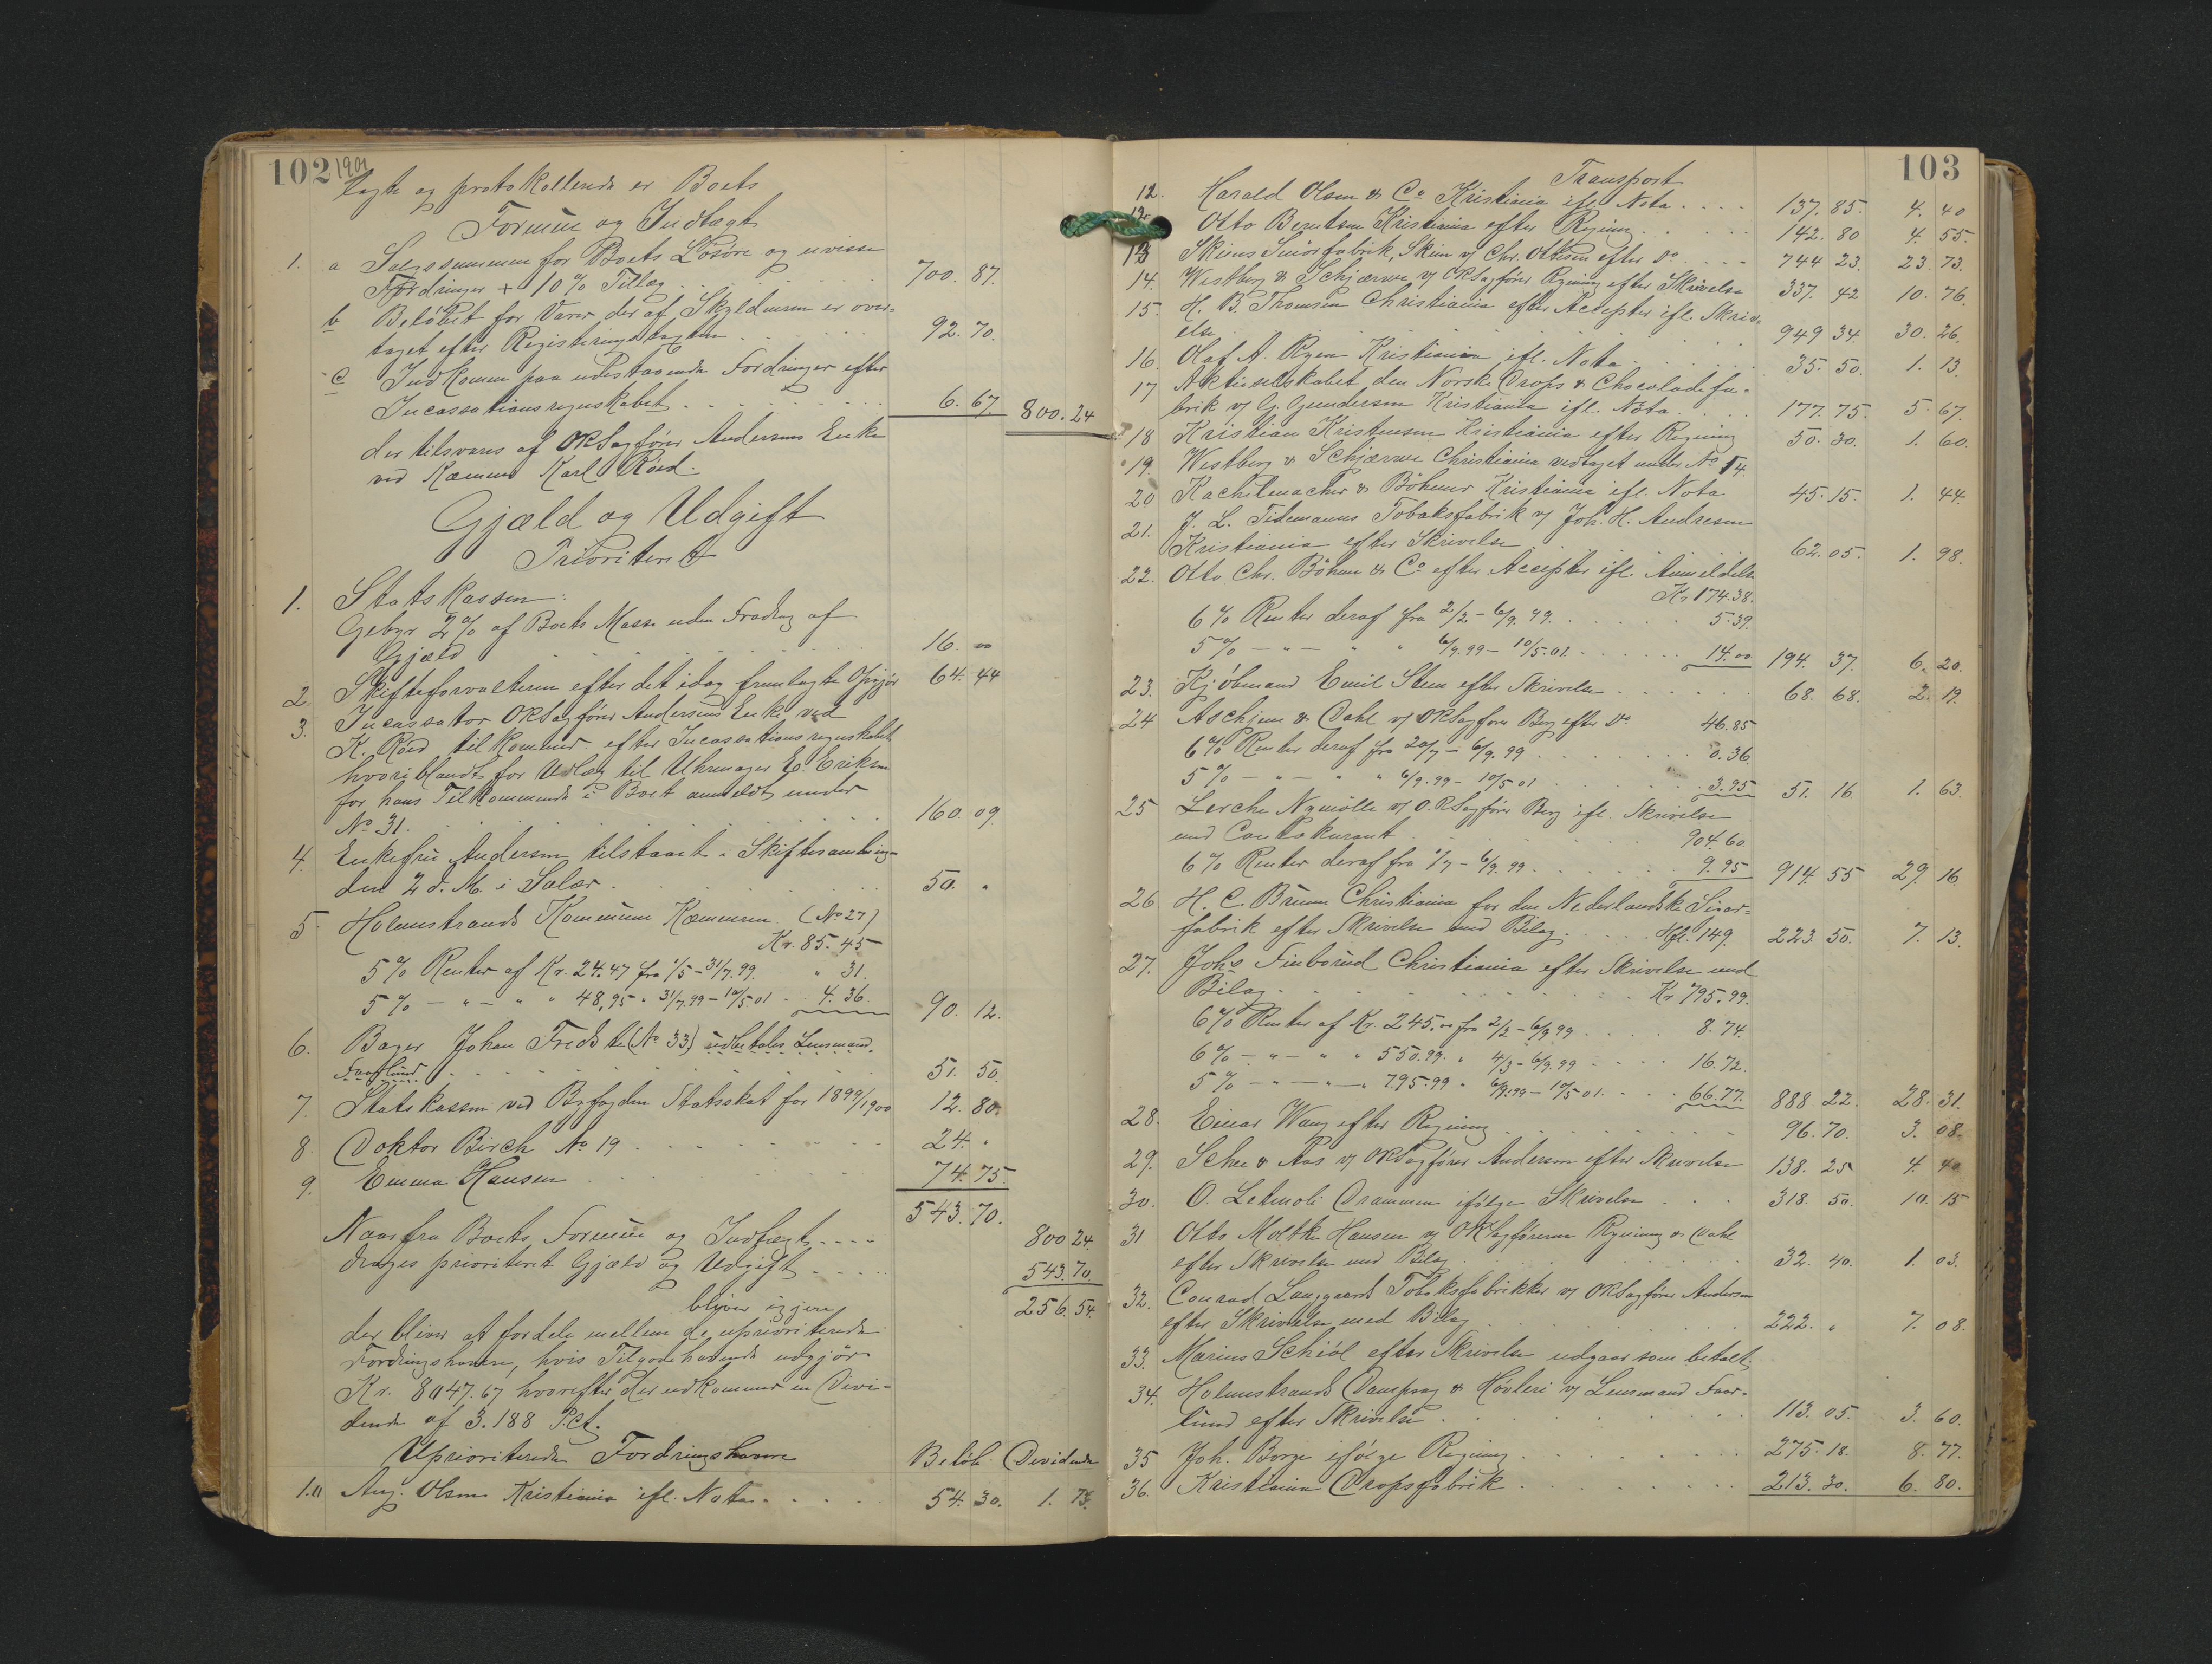 102 1901
lagte og protokollerede er Boets
Formue og Indtægt
1. a Salgssummen for Boets Løsøre og uvisse
Fordringer + 10% Tillæg 700. 87.
b Beløbet for Varer der af Skyldneren er over-
taget efter Registreringstaxten 92. 70.
c Indkommen paa udestaaende Fordringer efter
Incassationsregnskabet 6. 67. 800. 24
der tilsvares af ORSagfører Andersens Enke
ved Kæmner Karl Røed.
Gjæld og Udgift
Prioriteret
1. Statskassen:
Gebyr 2% af Boets Masse uden Fradrag af
Gjæld 16. 00
2. Skifteforvalteren efter det idag fremlagte Opgjør 64. 44
3. Incassator ORSagfører Andersens Enke ved
K. Røed tilkommer efter Incassationsregnskabet
hvoriblandt for Udlæg til Uhrmager E. Eriksen
for hans Tilkommende i Boet anmeldt under
No 31. 160. 09.
4. Enkefru Andersen tilstaaet i Skiftesamling
den 2 d. M. i Salær 50. "
5. Holmestrands Kommune Kæmneren (No 27)
Kr. 85. 45
5% Renter af Kr. 24.47 fra 1/5 - 31/7. 99. " 31.
5% - " - " " 48,95 " 31/7.99 - 10/5 01 4. 36. 90. 12.
6. Bager Johan Fredste (No 33) udbetales Lensmand
Faarlund 51. 50.
7. Statskassen ved Byfogden Statsskat for 1899/1900 12. 80.
8 Doktor Birch No 19 24. "
9. Emma Hansen 74. 75.
543. 70.
Naar fra Boets Formue og Indtægt 800 24.
drages prioriteret Gjæld og Udgift 543. 70.
bliver igjen 256. 54.
der bliver at fordele mellem de uprioriterede
Fordringshavere, hvis Tilgodehavende udgjør
Kr. 8047. 67 hvorefter der udkommer en Divi-
dende af 3.188 Pct.
Uprioriterede Fordringshavere Beløb Dividende
Aug. Olsen Kristiania ifl. Nota 54. 30. 1. 73.
103
Transport
12. Harald Olsen & Co Kristiania ifl. Nota 137. 85. 4. 40
12. Otto Berntsen Kristiania efter Regning 142. 80 4. 55.
13 Skiens Smørfabrik, Skien v/ Chr. Ottesen efter Do 744 23. 23. 73.
14. Westberg & Schjærve v/ ORSagfører Rygning efter Skrivelse 337. 42 10. 76.
15. H. B. Thomsen Christiania efter Accepter ifl. Skriv-
else 949 34. 30. 26.
16. Olaf A. Ryen Kristiania ifl. Nota 35. 50. 1. 13.
17 Aktieselskabet den Norske Drops & Chocoladefa-
brik v/ G. Gundersen Kristiania ifl. Nota 177. 75. 5. 67.
18 Kristian Kristensen Kristiania efter Regning 50. 30. 1. 60.
19. Westberg & Schjærve Christiania vedtaget under No 14.
20 Kachelmacher & Böhmer Kristiania ifl. Nota 45. 15. 1. 44.
21. J. L. Tidemanns Tobaksfabrik v/ Joh. H. Andresen
Kristiania efter Skrivelse 62. 05. 1. 98.
22. Otto Chr. Böhme & Co efter Accepter ifl. Anmeldelse
Kr 174. 38.
6% Renter deraf fra 2/2 - 6/9. 99. 5. 39.
5% - " - " " 6/9. 99 - 10/5. 01. 14. 00 194. 37. 6. 20.
23. Kjøbmand Emil Steen efter Skrivelse 68. 68. 2. 19.
24 Aschjem & Dahl v/ ORSagfører Berg efter Do 46. 85
6% Renter deraf fra 20/7 - 6/9. 99 0. 36.
5% - " - " " 6/9. 99 - 10/5 01 3. 95 51. 16 1. 63.
25 Lerche Nymølle v/ O.R.Sagfører Berg ifl. Skrivelse
med Contokurant 904. 60
6% Renter deraf fra 1/7 - 6/9. 99 9. 95 914. 55 29. 16.
26 H. C. Bruun Christiania for den Nederlandske Sigar-
fabrik efter Skrivelse med Bilag Hfl. 149. 223 50. 7. 13.
27. Johs Finborud Christiania efter Skrivelse med
Bilag Kr 795. 99.
6% Renter af Kr. 245. 00 fra 2/2 - 6/9 99 8. 74.
6% - " - " " 550. 99. " 4/3 - 6/9. 99 16. 72.
5% - " - " - " 795. 99 " 6/9. 99 - 10/5 01. 66. 77. 888 22. 28. 31.
28. Einar Wang efter Regning 96. 70. 3. 08.
29. Schee & Aas v/ ORSagfører Andersen efter Skrivelse 138. 25 4. 40
30. O. Letmoli Drammen ifølge Skrivelse 318. 50. 10. 15
31 Otto Moltke Hansen v/ ORSagførerne Rygning & Dahl
efter Skrivelse med Bilag 32. 40. 1. 03.
32. Conrad Langgaards Tobaksfabrikker v/ ORSagfører Andersen
efter Skrivelse med Bilag 222. " 7. 08.
33. Marius Schiøl efter Skrivelse udgaar som betalt.
34. Holmestrands Dampsag & Høvleri v/ Lensmand Faar-
lund efter Skrivelse 113. 05. 3. 60.
35 Joh. Borge ifølge Regning 275. 18. 8. 77.
36. Kristiania Dropsfabrik 213. 30. 6. 80.